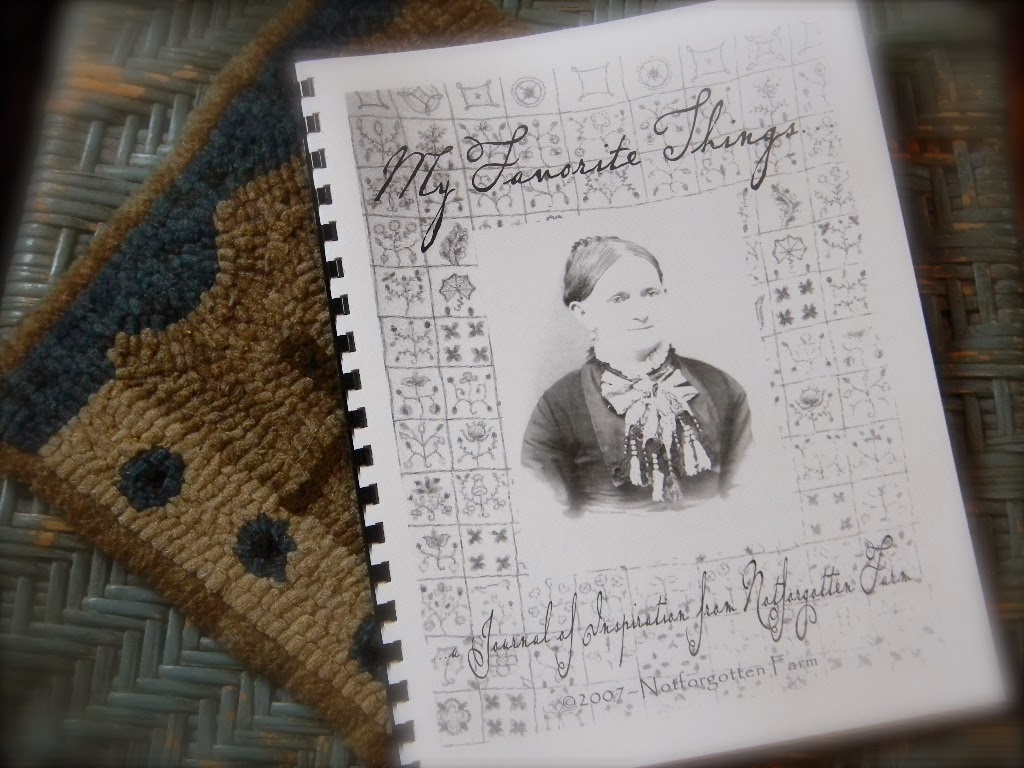 My Favorite Things...
...a Journal of Inspiration from Notforgotten Farm
©2007~Notforgotten Farm